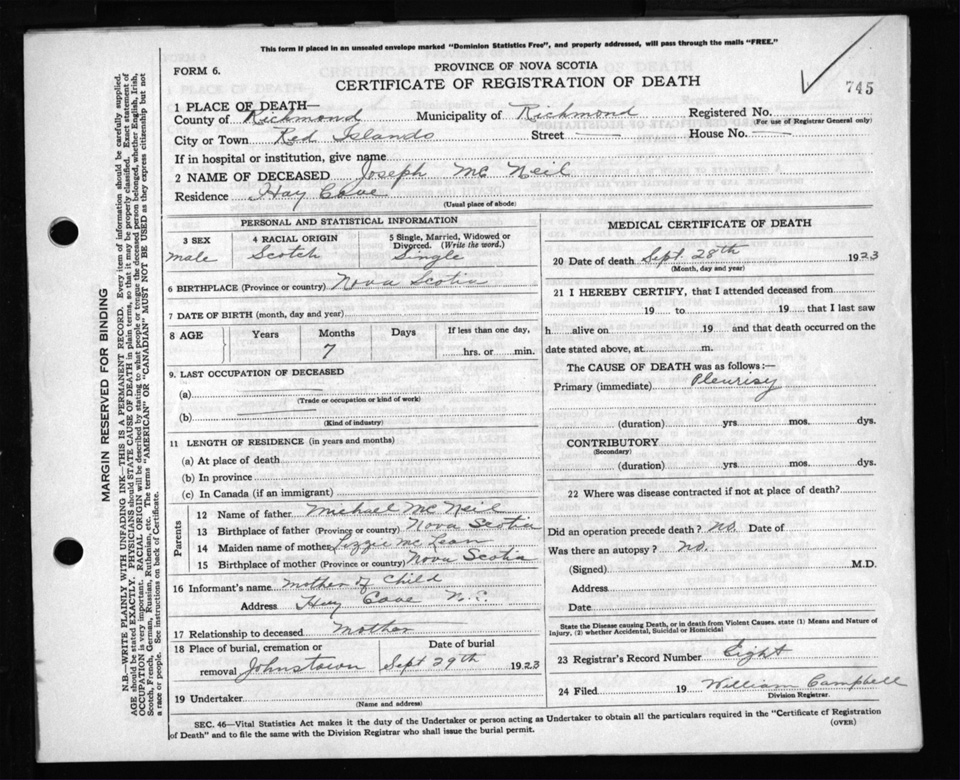 This form if placed in an unsealed envelope marked "Dominion Statistics Free", and properly addressed, will pass through the mails "FREE."
FORM 6.
PROVINCE OF NOVA SCOTIA
CERTIFICATE OF REGISTRATION OF DEATH
745
1 PLACE OF DEATH—
County of Richmond Municipality of Richmond Registered No.
(For use of Registrar General only)
City or Town Red Islands Street — House No. —
If in hospital or institution, give name
2 NAME OF DECEASED Joseph Mc Neil
Residence Hay Cove
(Usual place of abode)
PERSONAL AND STATISTICAL INFORMATION
3 SEX
male
4 RACIAL ORIGIN
Scotch
5 Single, Married, Widowed or Divorced. (Write the word.)
Single
6 BIRTHPLACE (Province or country) Nova Scotia
7 DATE OF BIRTH (month, day and year)
8 AGE Years Months Days If less than one day,
7 hrs. or min.
9. LAST OCCUPATION OF DECEASED
(a)
(Trade or occupation or kind of work)
(b)
(Kind of industry)
11 LENGTH OF RESIDENCE (in years and months)
(a) At place of death
(b) In province
(c) In Canada (if an immigrant)
Parents
12 Name of father Michael Mc Neil
13 Birthplace of father (Province or country) Nova Scotia
14 Maiden name of mother Lizzie Mc Lean
15 Birthplace of mother (Province or country) Nova Scotia
16 Informant's name Mother of Child
Address Hay Cove N.S.
17 Relationship to deceased Mother
18 Place of burial, cremation or removal Johnstown
Date of burial
Sept 29th 1923
19 Undertaker
(Name and address)
MEDICAL CERTIFICATE OF DEATH
20 Date of death Sept. 28th 1923
(Month, day and year)
21 I HEREBY CERTIFY, that I attended deceased from
19 to 19 that I last saw
h alive on 19 and that death occurred on the
date stated above, at m.
The CAUSE OF DEATH was as follows:—
Primary (immediate) Pleurisy
(duration) yrs. mos. dys.
CONTRIBUTORY
(Secondary)
(duration) yrs. mos. dys.
22 Where was disease contracted if not at place of death?
Did an operation precede death? no. Date of
Was there an autopsy? no.
(Signed) M.D.
Address
Date
State the Disease causing Death, or in death from Violent Causes. state (1) Means and Nature of
Injury, (2) whether Accidental, Suicidal or Homicidal
23 Registrar's Record Number Eight
24 Filed 19 William Campbell
Division Registrar.
SEC. 46—Vital Statistics Act makes it the duty of the Undertaker or person acting as Undertaker to obtain all the particulars required in the "Certificate of Registration
of Death" and to file the same with the Division Registrar who shall issue the burial permit.
(OVER)
MARGIN RESERVED FOR BINDING
N.B.—WRITE PLAINLY WITH UNFADING INK—THIS IS A PERMANENT RECORD. Every item of information should be carefully supplied.
AGE should be stated EXACTLY. PHYSICIANS should STATE CAUSE OF DEATH in plain terms, so that it may be properly classified. Exact statement of
OCCUPATION is very important. RACIAL ORIGIN will be described by stating to what people or tongue the deceased person belonged, whether English, Irish,
Scotch, French, German, Russian, Ruthenian, etc. The terms "AMERICAN" OR "CANADIAN" MUST NOT BE USED as they express citizenship but not
a race or people. See instructions on back of Certificate.